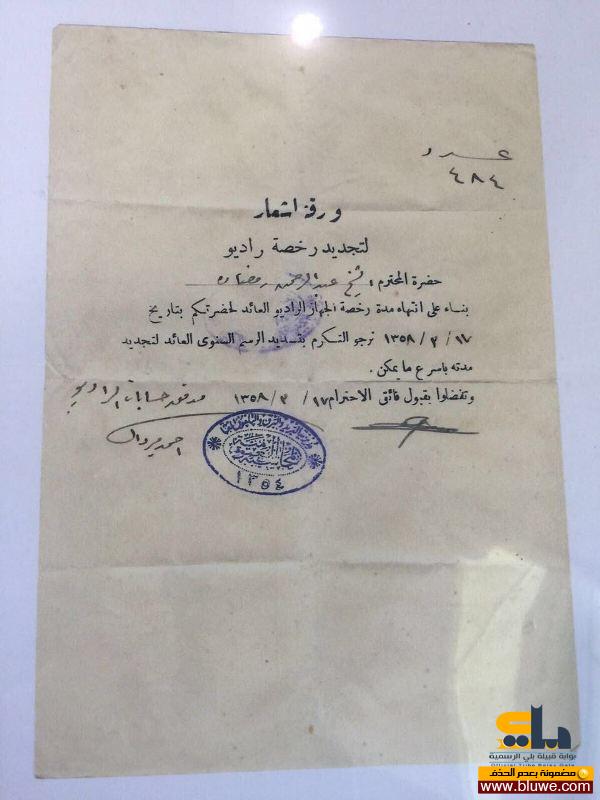 عدد
٤٨٤
ورقة اشعار
لتجديد رخصة راديو
حضرة المحترم الشيخ عبدالرحمن رمضان
بناء على انتهاء مدة رخصة الجهاز الراديو العائد لحضرتكم بتاريخ
١٧ / ٣ / ١٣٥٨ نرجو التكرم بتسديد الرسم السنوى العائد لتجديد
مدته باسرع ما يمكن .
وتفضلوا بقبول فائق الاحترام ١٧ / ٣ / ١٣٥٨
حسابات الراديو
احمد
١٣٥٤
بلي
بوابة قبيلة بلي الرسمية
مضمونة بعدم الحذف
www.bluwe.com